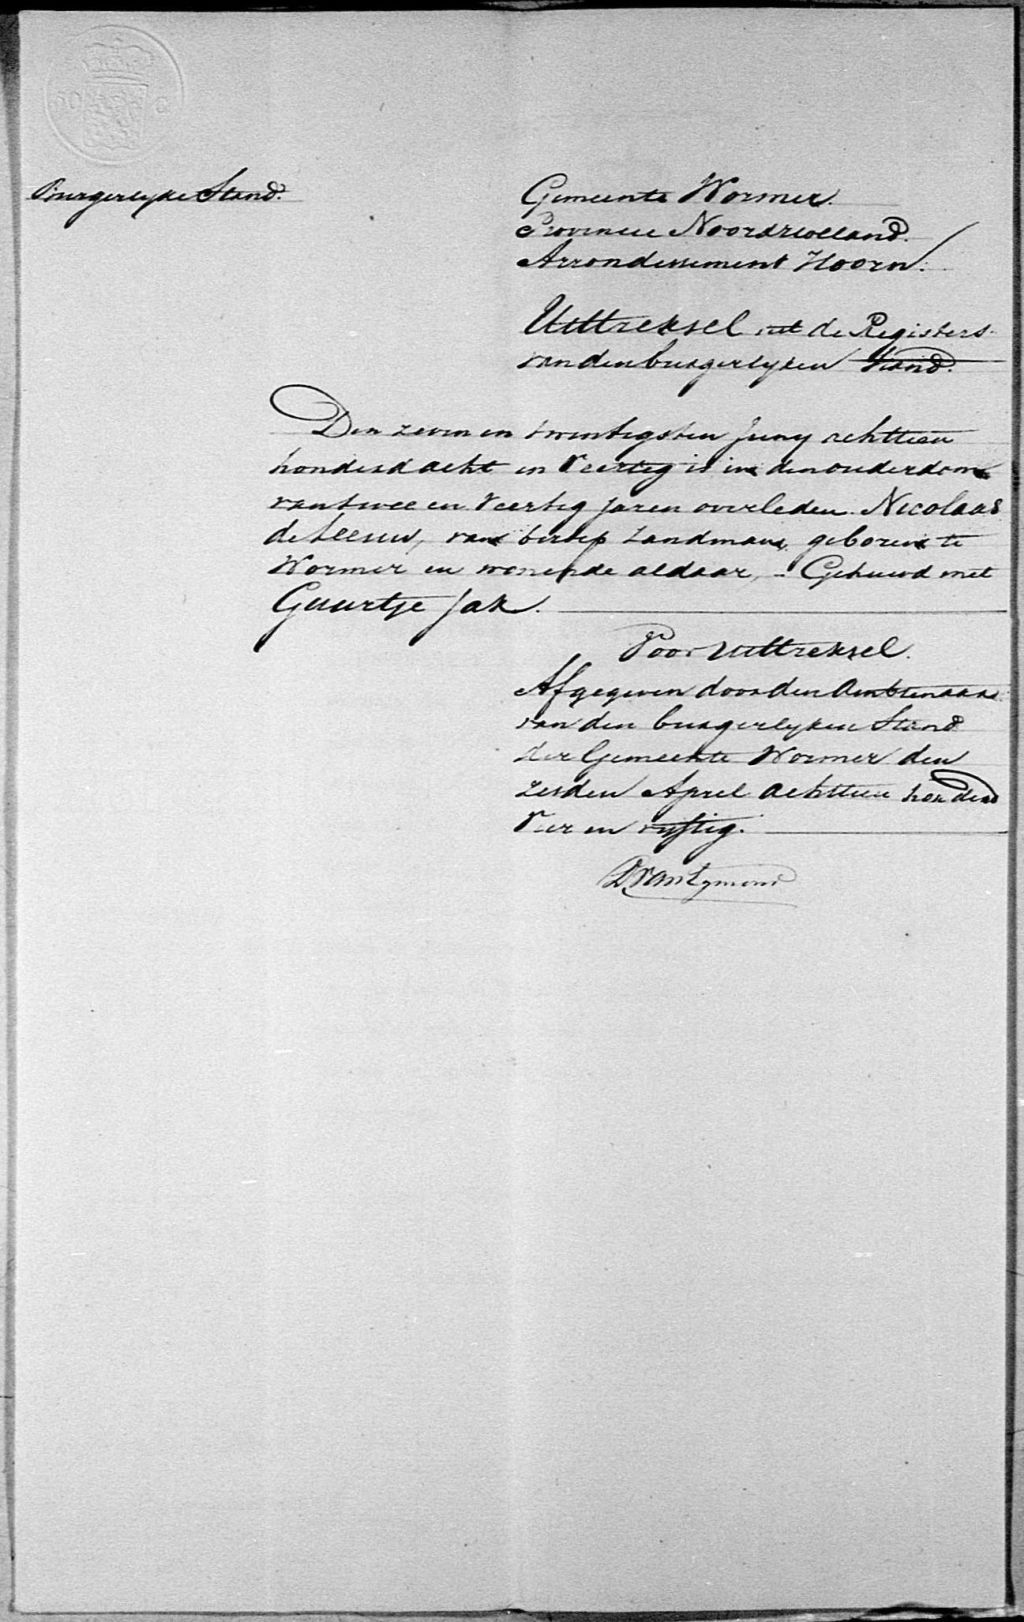 Burgerlyke Stand.
Gemeente Wormer.
Provincie Noordholland.
Arrondissement Hoorn.
Uittreksel uit de Registers
van den burgerlyken Stand.
Den zeven en twintigsten Juny achttien
honderd acht en Veertig is in den ouderdom
van twee en Veertig jaren overleden Nicolaas
de Leeuw, van beroep Landman, geboren te
Wormer en wonende aldaar, - Gehuwd met
Guurtje Jak.
Voor Uittreksel.
Afgegeven door den Ambtenaar
van den burgerlyken Stand
der Gemeente Wormer den
zesden April achttien honderd
Vier en vyftig.